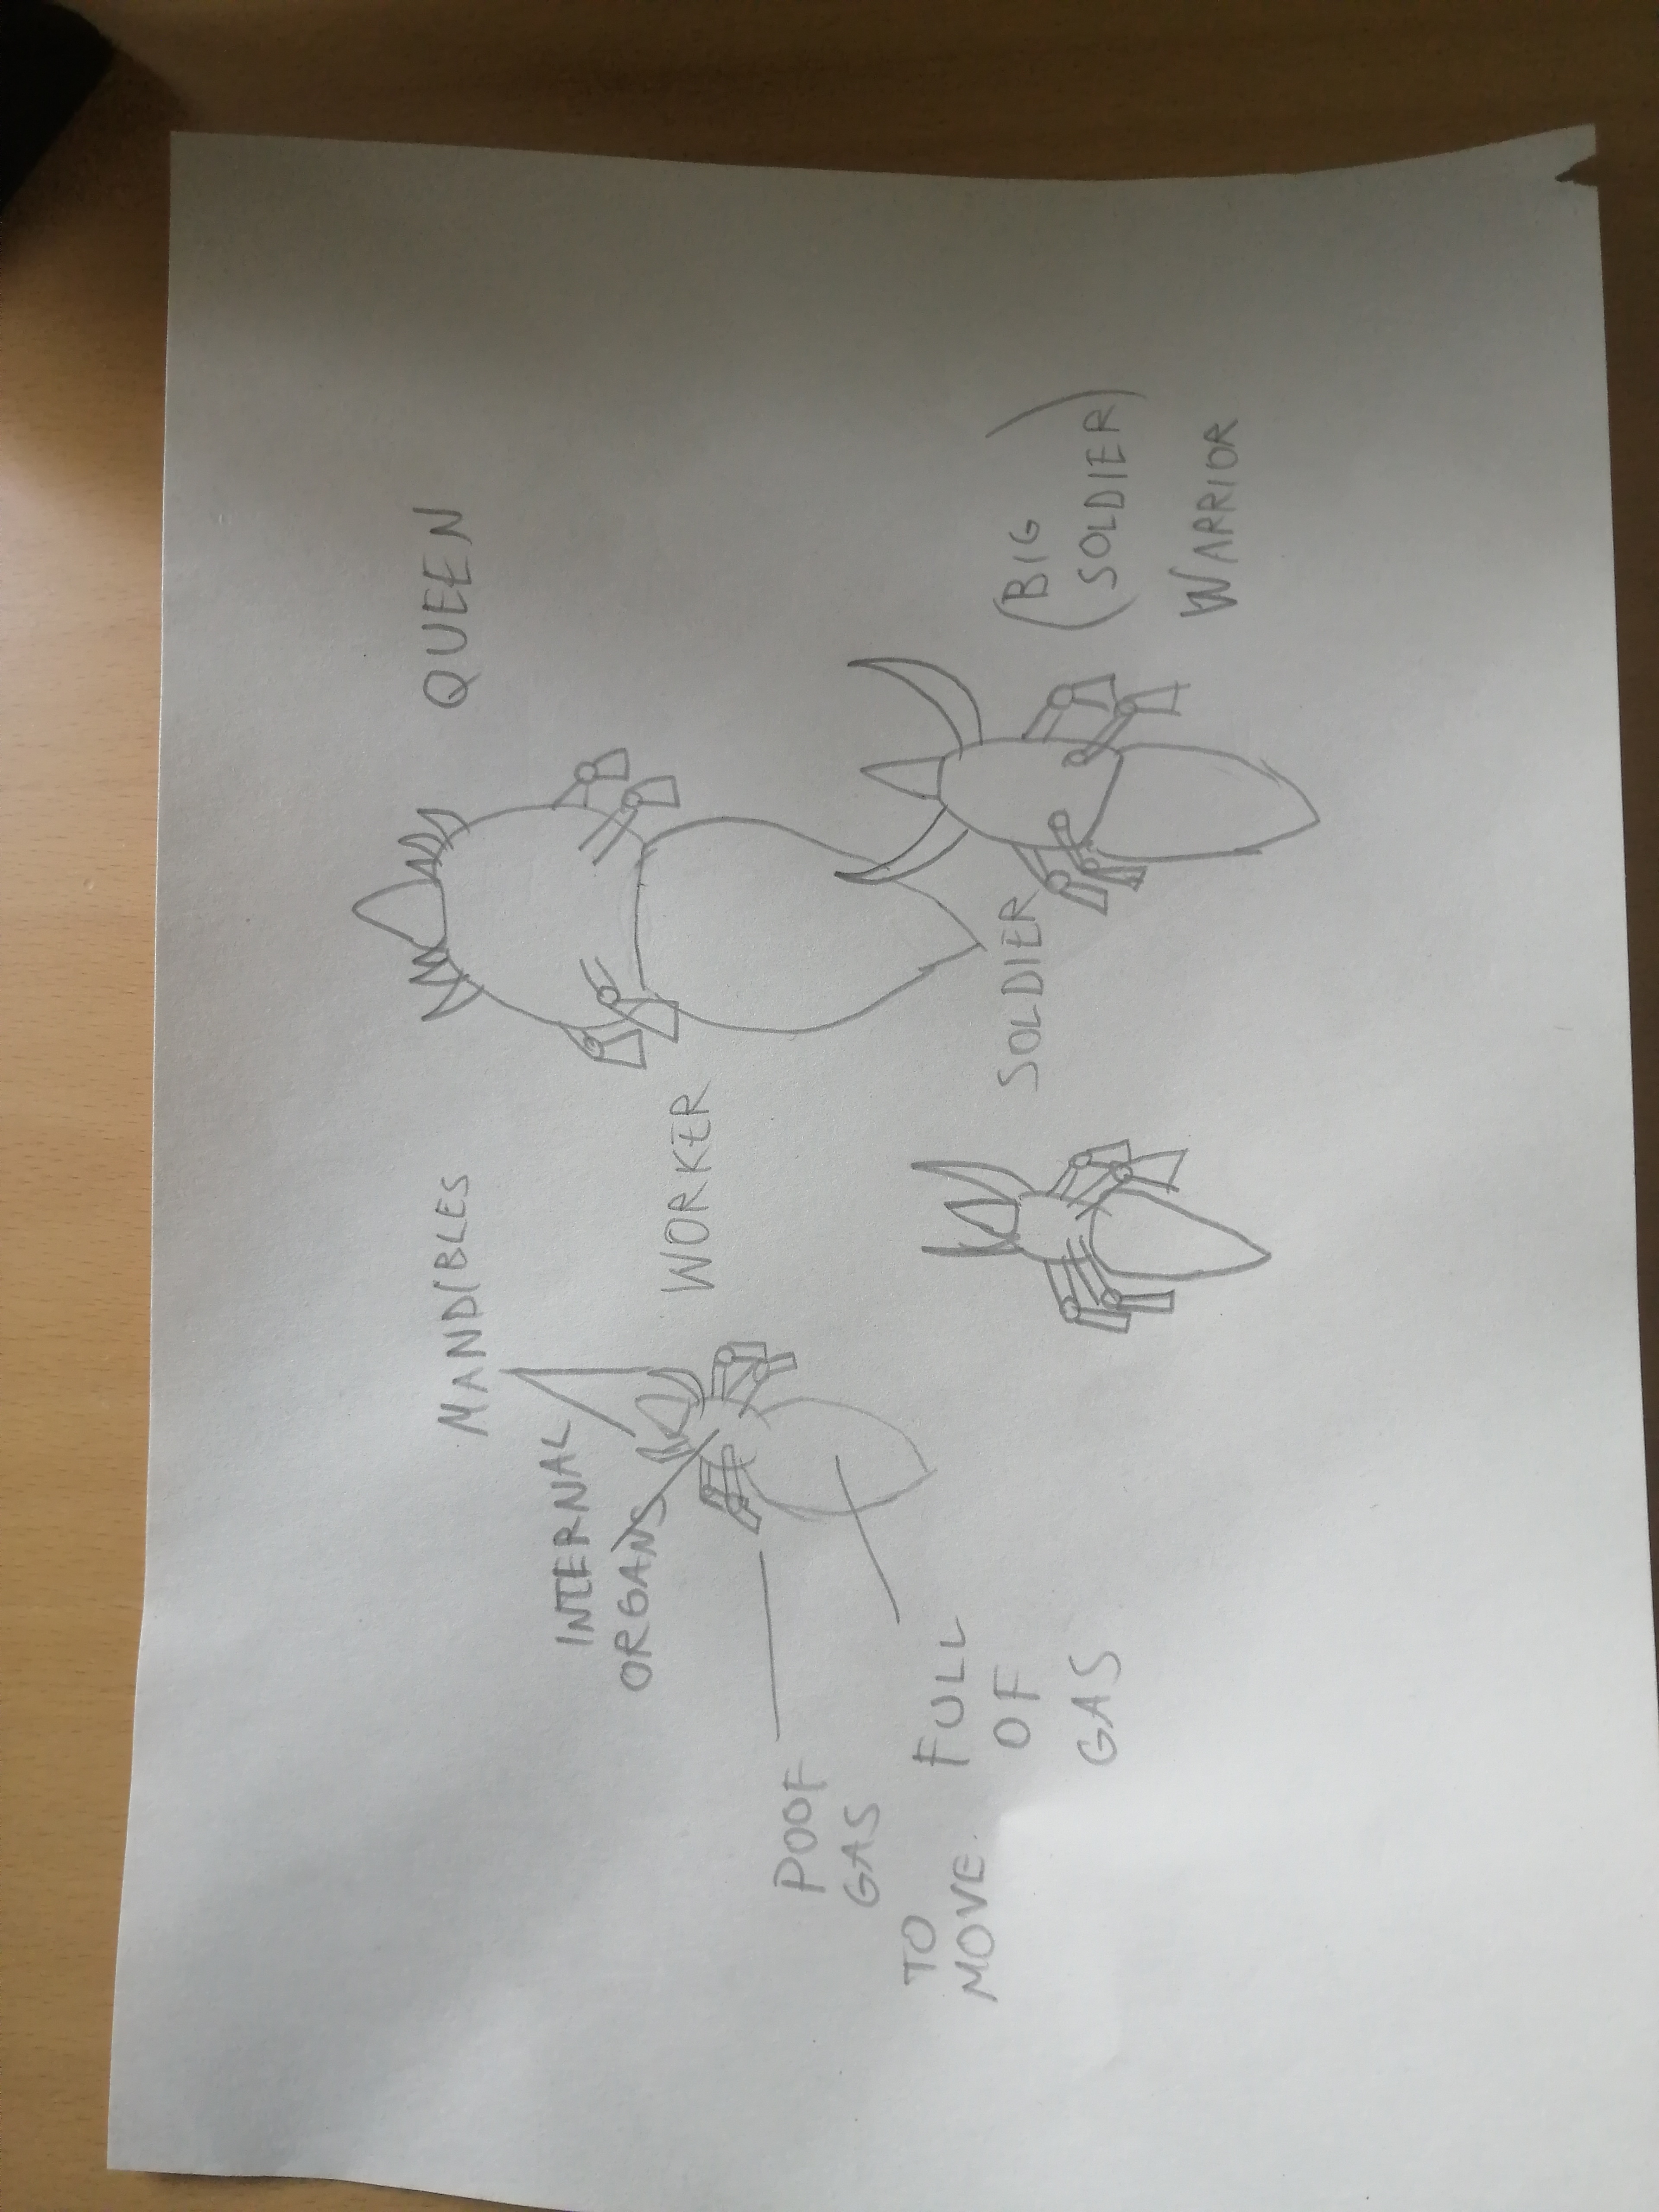 QUEEN
MANDIBLES
INTERNAL
ORGANS
WORKER
POOF
GAS
TO
MOVE.
FULL
OF
GAS
SOLDIER
(BIG
SOLDIER)
WARRIOR